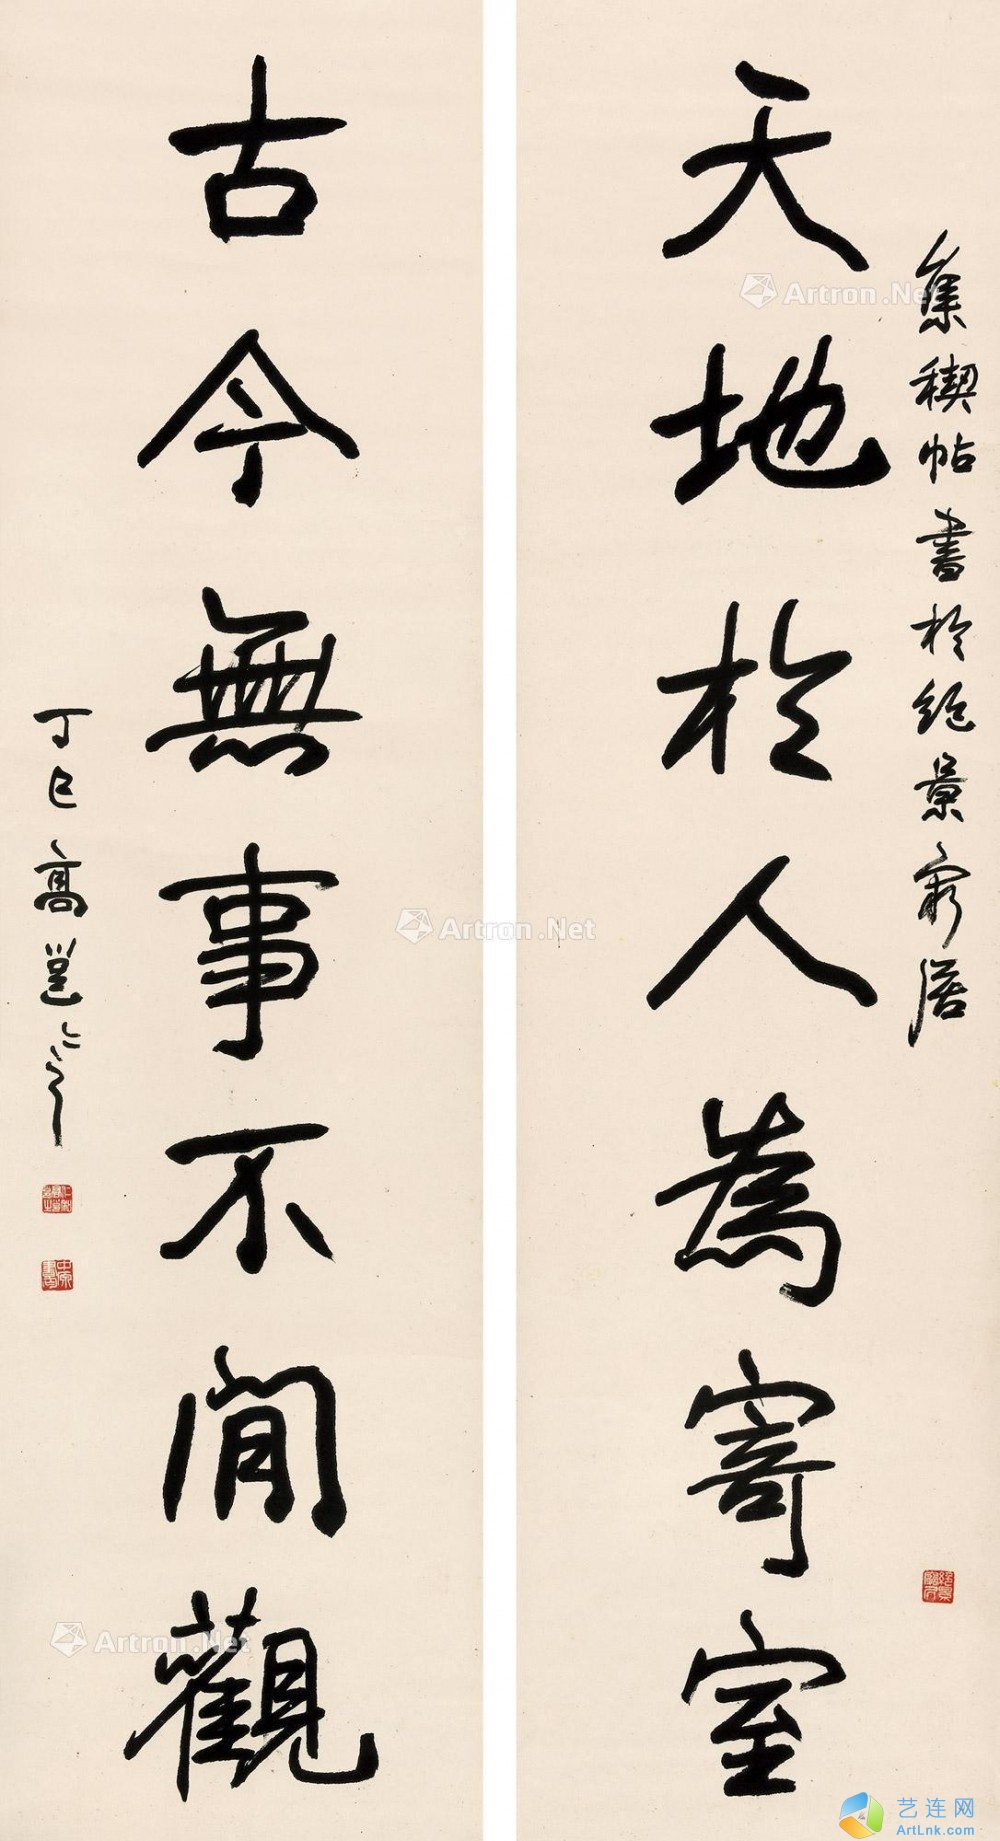 天地於人為寄室
集稧帖書於絕景窮居
古今無事不閒觀
丁巳高邕
Artron.Net
Artron.Net
Artron.Net
艺连网
ArtLnk.com